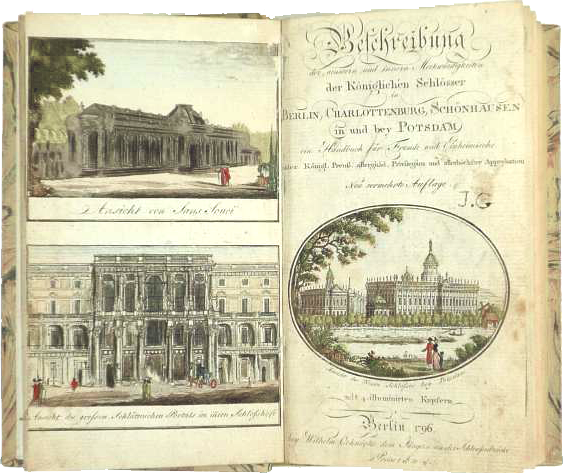 Ansicht von Sans Souci
Ansicht des grossen Schlüterschen Portals im innern Schloßhofe
Beschreibung
der äussern und innern Merkwürdigkeiten
der Königlichen Schlösser
in
BERLIN, CHARLOTTENBURG, SCHÖNHAUSEN
in und bey POTSDAM
ein Handbuch für Fremde und Einheimische
Königl. Preuß. allergnäd. Privilegium und allerhöchster Approbation
Neu vermehrte Auflage
J.G
Ansicht des Neuen Schlosses bey Potsdam
mit 4 illuminirten Kupfern
Berlin 1796.
bey Wilhelm Oehmigke dem Jüngern an der Schleusenbrücke